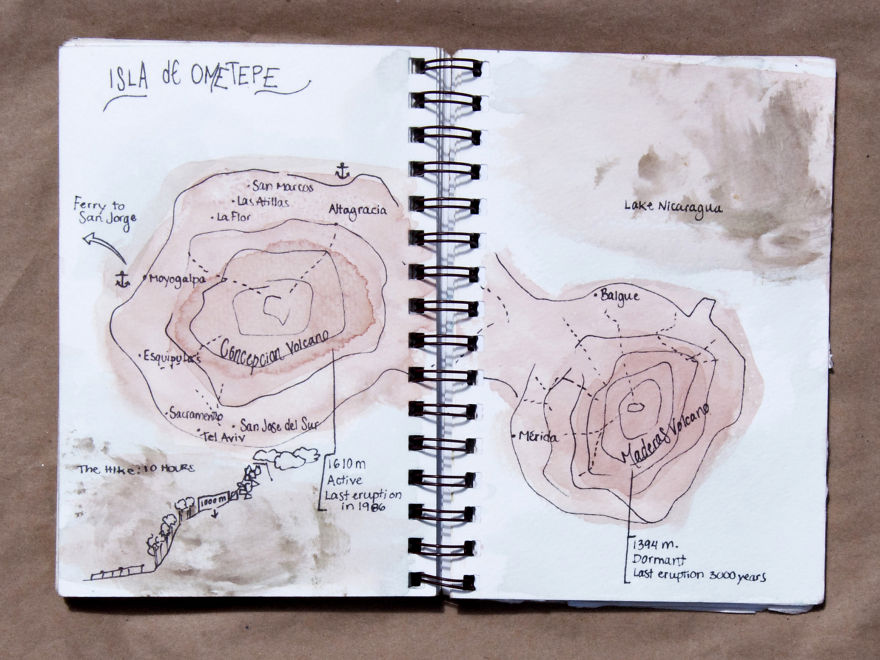 ISLA de OMETEPE
San Marcos
Las Atillas
La Flor
Altagracia
Ferry to
San Jorge
Moyogalpa
Concepcion Volcano
Esquipulas
Sacramento
San Jose del Sur
Tel Aviv
The Hike: 10 HOURS
1000m
1610m
Active
Last eruption
in 1986
Lake Nicaragua
Balgue
Mérida
Maderas Volcano
1394 m.
Dormant
Last eruption 3000 years